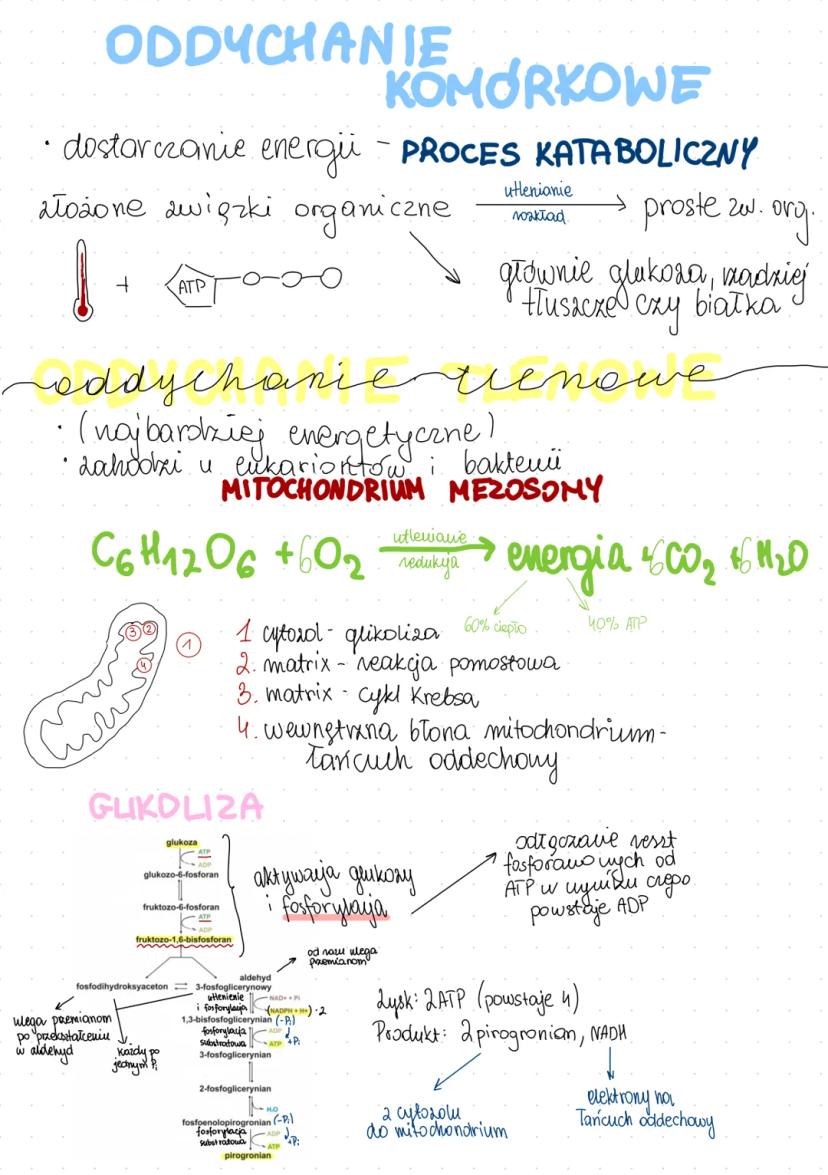 ODDYCHANIE
KOMÓRKOWE
· dostarczanie energii - PROCES KATABOLICZNY
złożone związki organiczne utlenianie rozkład → proste zw. org.
+ ATP
głównie glukoza, rzadziej
tłuszcze czy białka
ODDYCHANIE TLENOWE
oddychanie tlenowe
· (najbardziej energetyczne)
· zachodzi u eukariontów i bakterii
MITOCHONDRIUM MEZOSOMY
C6H12O6 + 6O2 utlenianie redukcja → energia + 6CO2 + 6H2O
60% ciepło 40% ATP
3 2 1
4
1 cytozol - glikoliza
2. matrix - reakcja pomostowa
3. matrix - cykl Krebsa
4. wewnętrzna błona mitochondrium -
łańcuch oddechowy
GLIKOLIZA
glukoza
ATP
ADP
glukozo-6-fosforan
fruktozo-6-fosforan
ATP
ADP
fruktozo-1,6-bisfosforan
aktywacja glukozy
i fosforylacja
odłączanie reszt
fosforanowych od
ATP w wyniku czego
powstaje ADP
od razu ulega
przemianom
fosfodihydroksyaceton
aldehyd
3-fosfoglicerynowy
ulega przemianom
po przekształceniu
w aldehyd
każdy po
jednym Pi
utlenienie
i fosforylacja
NAD+ + Pi
(NADPH + H+) · 2
1,3-bisfosfoglicerynian (-Pi)
fosforylacja
substratowa
ADP
ATP
+Pi
3-fosfoglicerynian
2-fosfoglicerynian
H2O
fosfoenolopirogronian (-Pi)
fosforylacja
substratowa
ADP
ATP
+Pi
pirogronian
Zysk: 2ATP (powstaje 4)
Produkt: 2 pirogronian, NADH
z cytozolu
do mitochondrium
elektrony na
łańcuch oddechowy